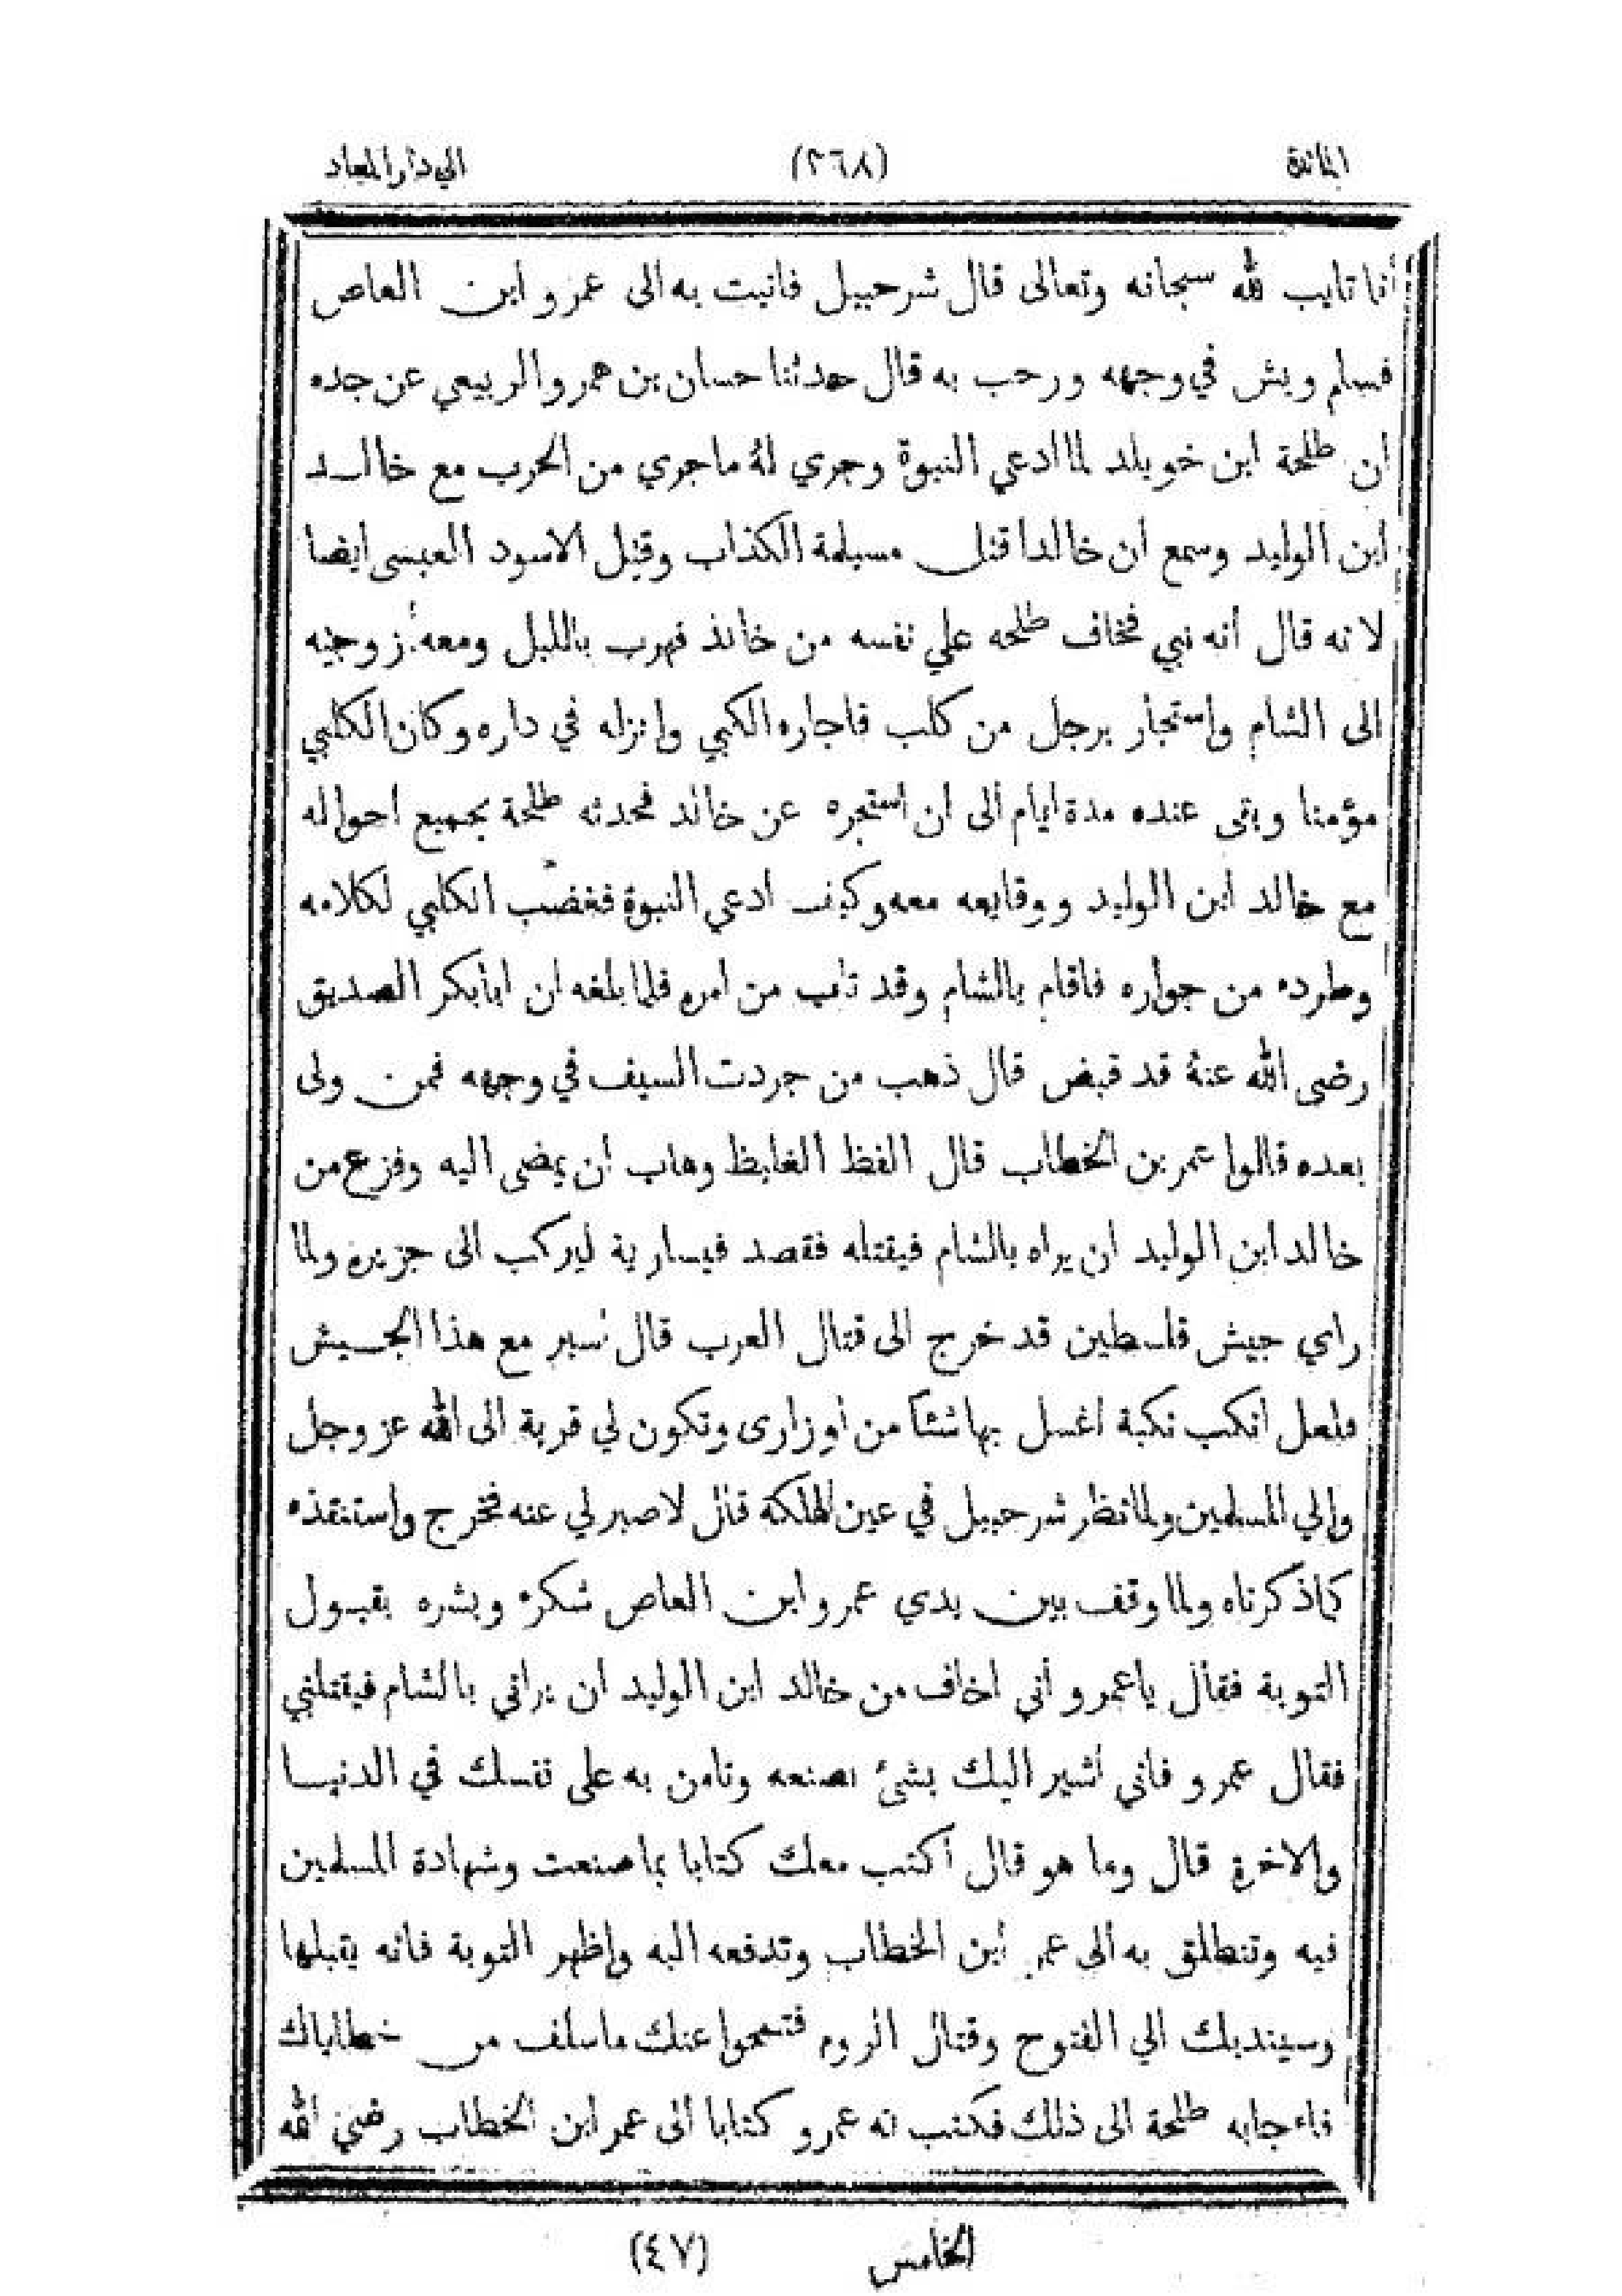 المائدة (٣٦٨) الي دار المعاد
أنا تايب لله سبحانه وتعالى قال شرحبيل فاتيت به الى عمرو ابن العاص
فسلم وبش في وجهه ورحب به قال حدثنا حسان بن عمرو الربيعي عن جده
ان طلحة ابن خويلد لما ادعي النبوة وجري لهُ ماجري من الحرب مع خالد
ابن الوليد وسمع ان خالدا قتل مسيلمة الكذاب وقتل الاسود العبسى ايضا
لانه قال أنه نبي فخاف طلحه علي نفسه من خالد فهرب بالليل ومعه زوجته
الى الشام واستجار برجل من كلب فاجاره الكبي وانزله في داره وكان الكلبي
مؤمنا وبقى عنده مدة ايام الى ان استجره عن خالد فحدثه طلحة بجميع احواله
مع خالد ابن الوليد ووقايعه معه وكيف ادعي النبوة فغضب الكلبي لكلامه
وطرده من جواره فاقام بالشام وقد تاب من امره فلما بلغه ان ابابكر الصديق
رضى الله عنهُ قد قبض قال ذهب من جردت السيف في وجهه فمن ولى
بعده قالوا عمر بن الخطاب قال الفظ الغليظ وهاب ان يمضى اليه وفزع من
خالد ابن الوليد ان يراه بالشام فيقتله فقصد قيسارية ليركب الى جزيره ولما
راي جيش فلسطين قد خرج الى قتال العرب قال نسير مع هذا الجيش
فلعل انكب نكبة اغسل بها شئاً من اوزارى وتكون لي قربة الى الله عز وجل
والي المسلمين ولما نظر شرحبيل في عين الهلكة قال لاصبر لي عنه فخرج واستنقذه
كما ذكرناه ولما وقف بين يدي عمرو ابن العاص شكره وبشره بقبول
التوبة فقال ياعمرو أني اخاف من خالد ابن الوليد ان يراني بالشام فيقتلني
فقال عمرو فاني أشير اليك بشئ تصنعه وتامن به على نفسك في الدنيا
والاخرة قال وما هو قال أكتب معك كتابا بما صنعت وشهادة المسلمين
فيه وتنطلق به الى عمر ابن الخطاب وتدفعه اليه واظهر التوبة فانه يقبلها
وسيندبك الي الفتوح وقتال الروم فتمحوا عنك ماسلف من خطاياك
فاء جابه طلحة الى ذلك فكتب له عمرو كتابا الى عمر ابن الخطاب رضي الله
الخامس (٤٧)